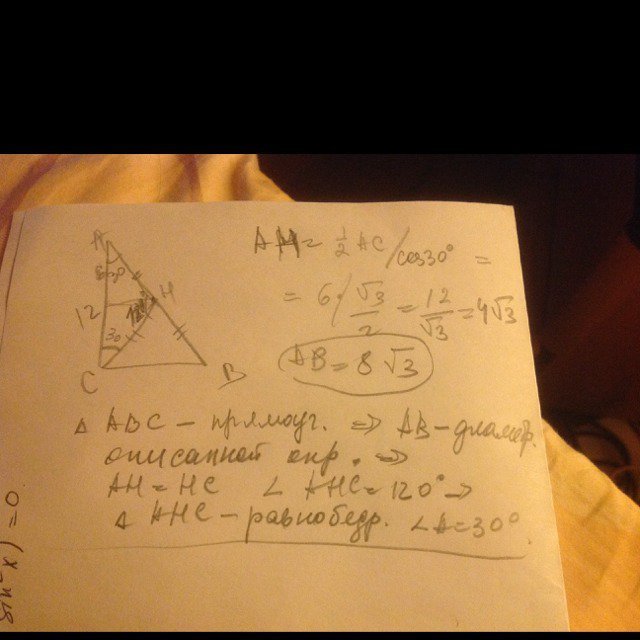 A
30°
12
H
30
C
B
AH = 1/2 AC / cos30° =
= 6 / √3/2 = 12/√3 = 4√3
AB = 8√3
Δ ABC – прямоуг. ⇒ AB – диаметр.
описанной окр. ⇒
AH = HC ∠ AHC = 120° →
Δ AHC – равнобедр. ∠A = 30°
sin²x) = 0